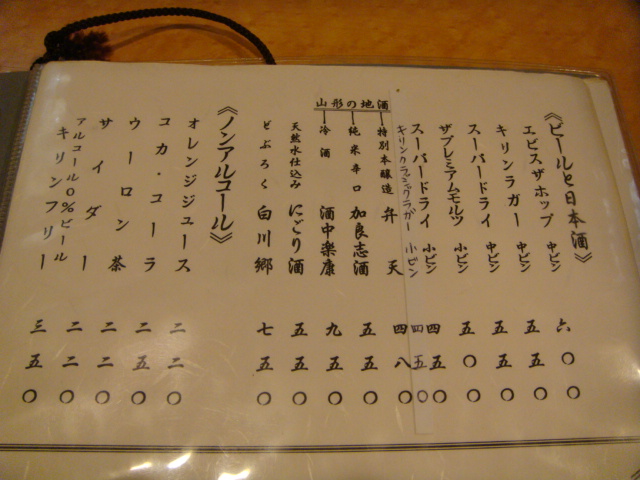 《ビールと日本酒》
エビスザホップ 中ビン 六〇〇
キリンラガー 中ビン 五五〇
スーパードライ 中ビン 五五〇
ザプレミアムモルツ 小ビン 五〇〇
スーパードライ 小ビン 四五〇
キリンクラシックラガー 小ビン 四五〇
山形の地酒
特別本醸造 弁天 四八〇
純米辛口 加良志酒 五五〇
冷酒 酒中楽康 九五〇
天然水仕込み にごり酒 五五〇
どぶろく 白川郷 七五〇
《ノンアルコール》
オレンジジュース 二二〇
コカ・コーラ 二五〇
ウーロン茶 二二〇
サイダー 二二〇
アルコール0%ビール
キリンフリー 三五〇